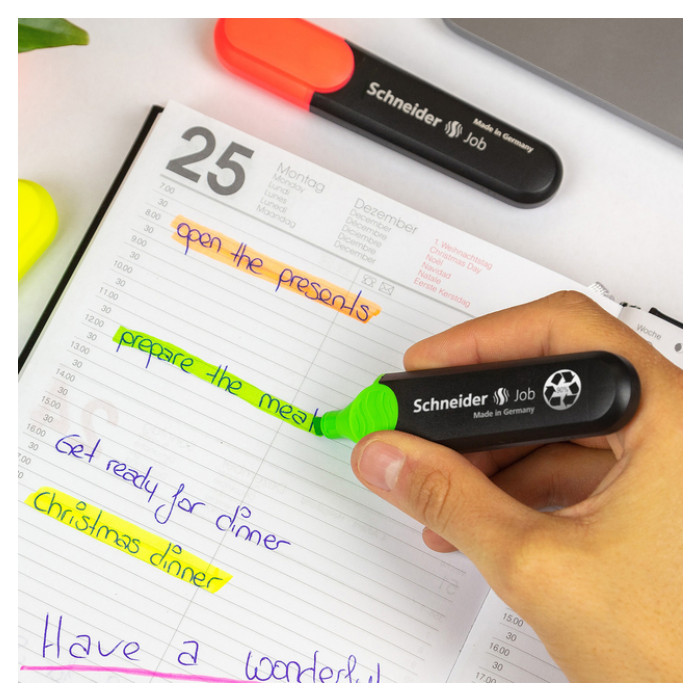 Schneider Job
Made in Germany
25
Montag
Monday
Lundi
Lunes
Lunedì
Maandag
Dezember
December
Décembre
Diciembre
Dicembre
December
1. Weihnachtstag
Christmas Day
Noël
Navidad
Natale
Eerste Kerstdag
Woche
7.00
30
8.00
30
9.00
30
10.00
30
11.00
30
12.00
30
13.00
30
14.00
30
15.00
30
16.00
30
17.00
30
open the presents
prepare the meal
Get ready for dinner
Christmas dinner
Have a wonderful
Schneider Job
Made in Germany
15.00
30
16.00
30
17.00